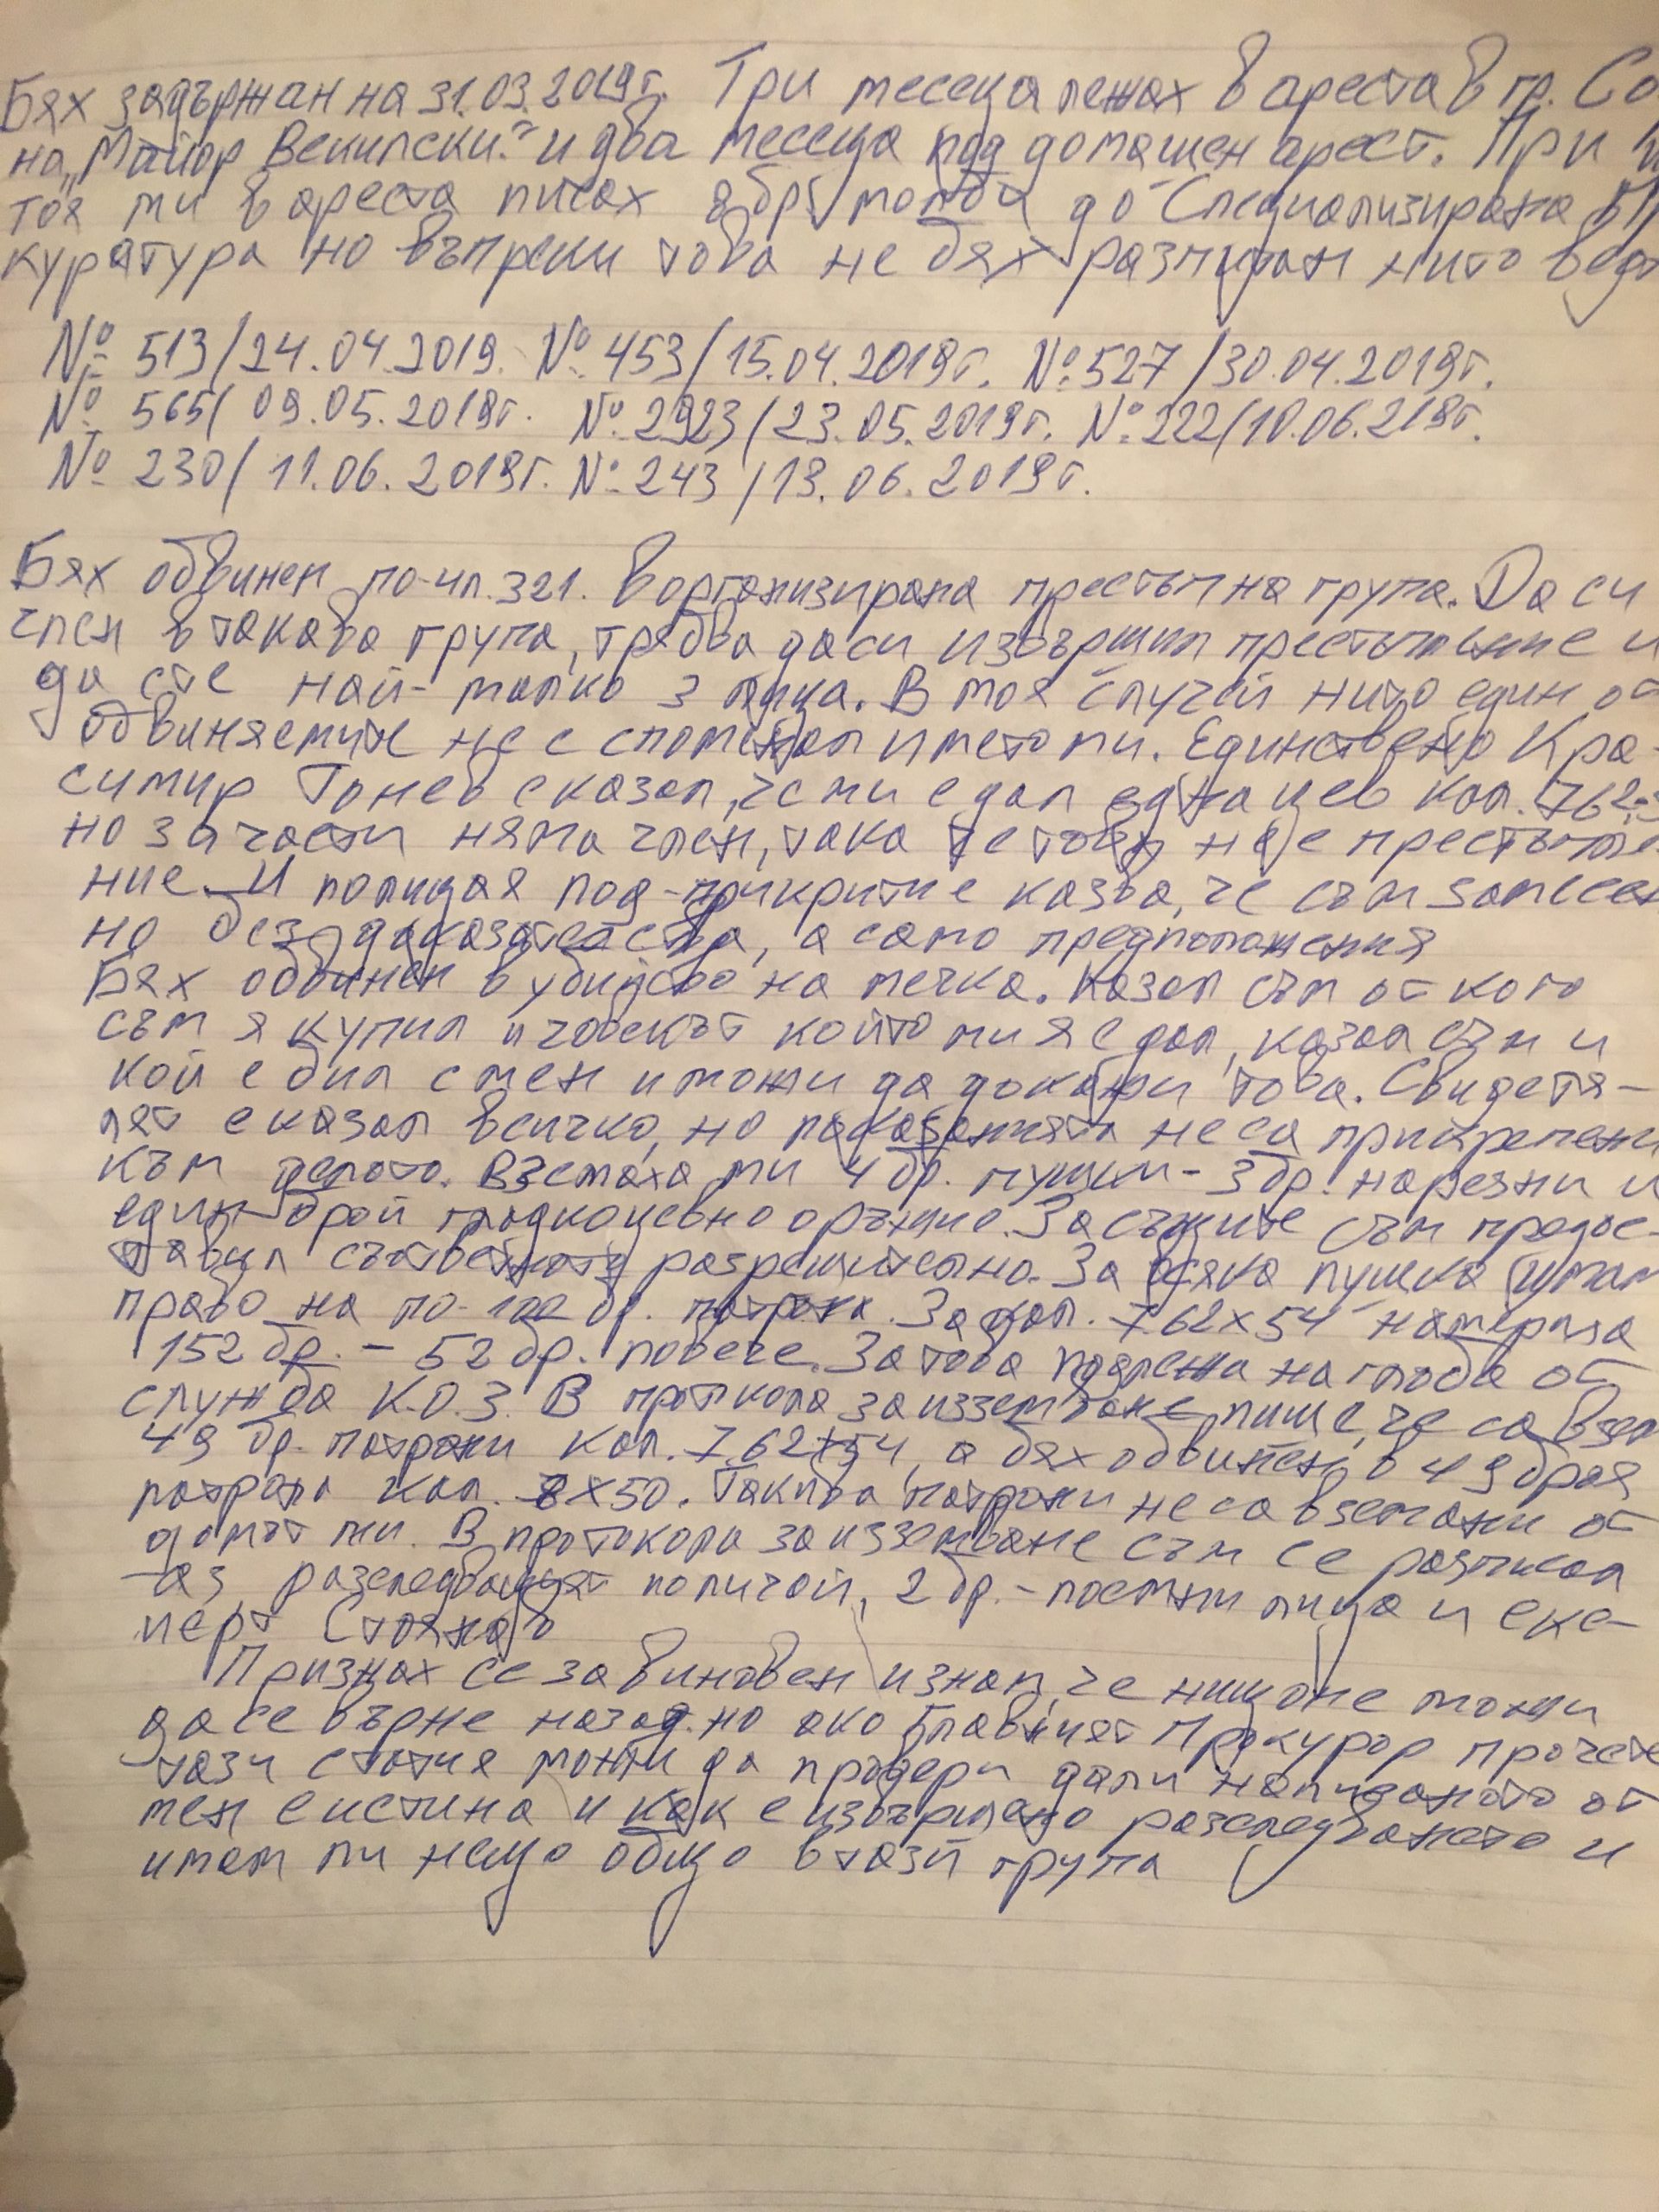 Бях задържан на 31.03.2019г. Три месеца лежах в ареста в гр. Со
на „Майор Векилски" и два месеца под домашен арест. При
тоя ми в ареста писах 8 бр. молби до Специализирана П
куратура но въпреки това не бях разпитан нито вед
№ 513/24.04.2019. № 453/15.04.2019г. № 527/30.04.2019г.
№ 565/09.05.2019г. № 2923/23.05.2019г. № 222/10.06.219г.
№ 230/11.06.2019г. № 243/13.06.2019г.
Бях обвинен по чл. 321. в организирана престъпна група. Да си
член в такава група, трябва да си извършил престъпление и
да сте най-малко 3 лица. В моя случай нито един от
обвиняемите не е споменал името ми. Единствено Кра-
симир Гонев е казал, че ми е дал една цев кал. 762
но за части няма член, така че това не е престъпле
ние. И полицая под-прикритие казва, че съм
но без доказателства, а само предположения
Бях обвинен в убийство на мечка. Казал съм от кого
съм я купил и човекът който ми я е дал, казал съм и
кой е бил с мен и може да докажи това. Свидетя-
лят е казал всичко, но показанията не са прикрепени
към делото. Вземаха ми 4 бр. пушки - 3 бр. нарезни и
един брой гладкоцевно оръжие. За същите съм предос-
тавил съответното разрешително. За всяка пушка имам
право на по-100 бр. патрона. За кал. 7.62х54 намериха
152 бр. - 52 бр. повече. За това подлежа на глоба от
служба К.О.З. В протокола за иззeмване пише, че са взел
49 бр. патрони кал. 7.62х54, а бях обвинен в 49 броя
патрона кал. 8х50. Такива патрони не са вземани от
домът ми. В протокола за иззeмване съм се разписал
аз, разследващият полицай, 2 бр. - поемни лица и екс-
перт Стоянов
Признах се за виновен и знам, че нищо не може
да се върне назад. но ако Главният Прокурор прочете
тази статия може да провери дали написаното от
мен е истина и как е извършено разследването и
имам ли нещо общо в тази група